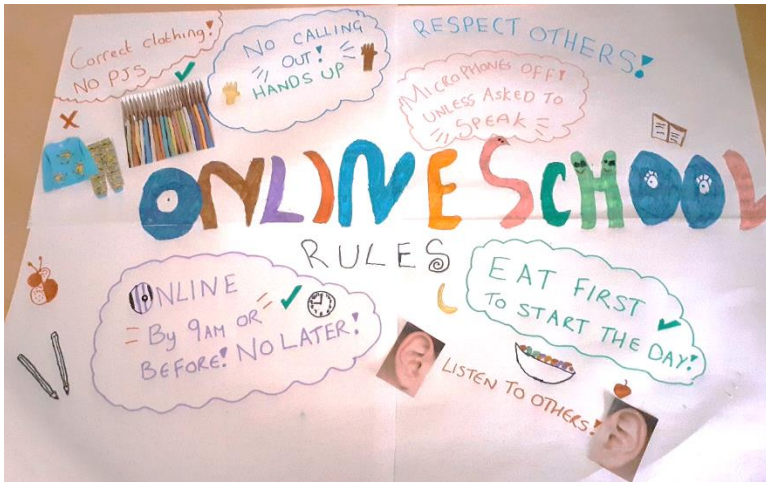 Correct clothing!
NO PJS
NO CALLING
OUT!
HANDS UP
RESPECT OTHERS!
MICROPHONES OFF!
UNLESS ASKED TO
SPEAK
ONLINE SCHOOL
RULES
ONLINE
By 9AM OR
BEFORE! NO LATER!
EAT FIRST
TO START THE DAY!
LISTEN TO OTHERS!